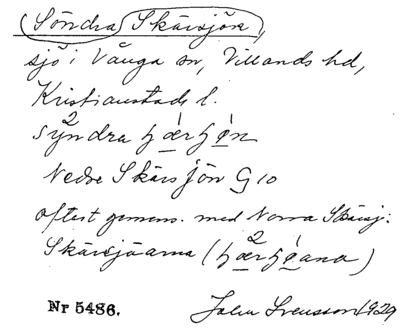 Söndra Skärsjön,
sjö i Vånga sn, Villands hd,
Kristianstads l.
Nedre Skärsjön G10
oftast gemens. med Norra Skärsj.
Skärsjöarna
Nr 5486.
John Svensson 1929